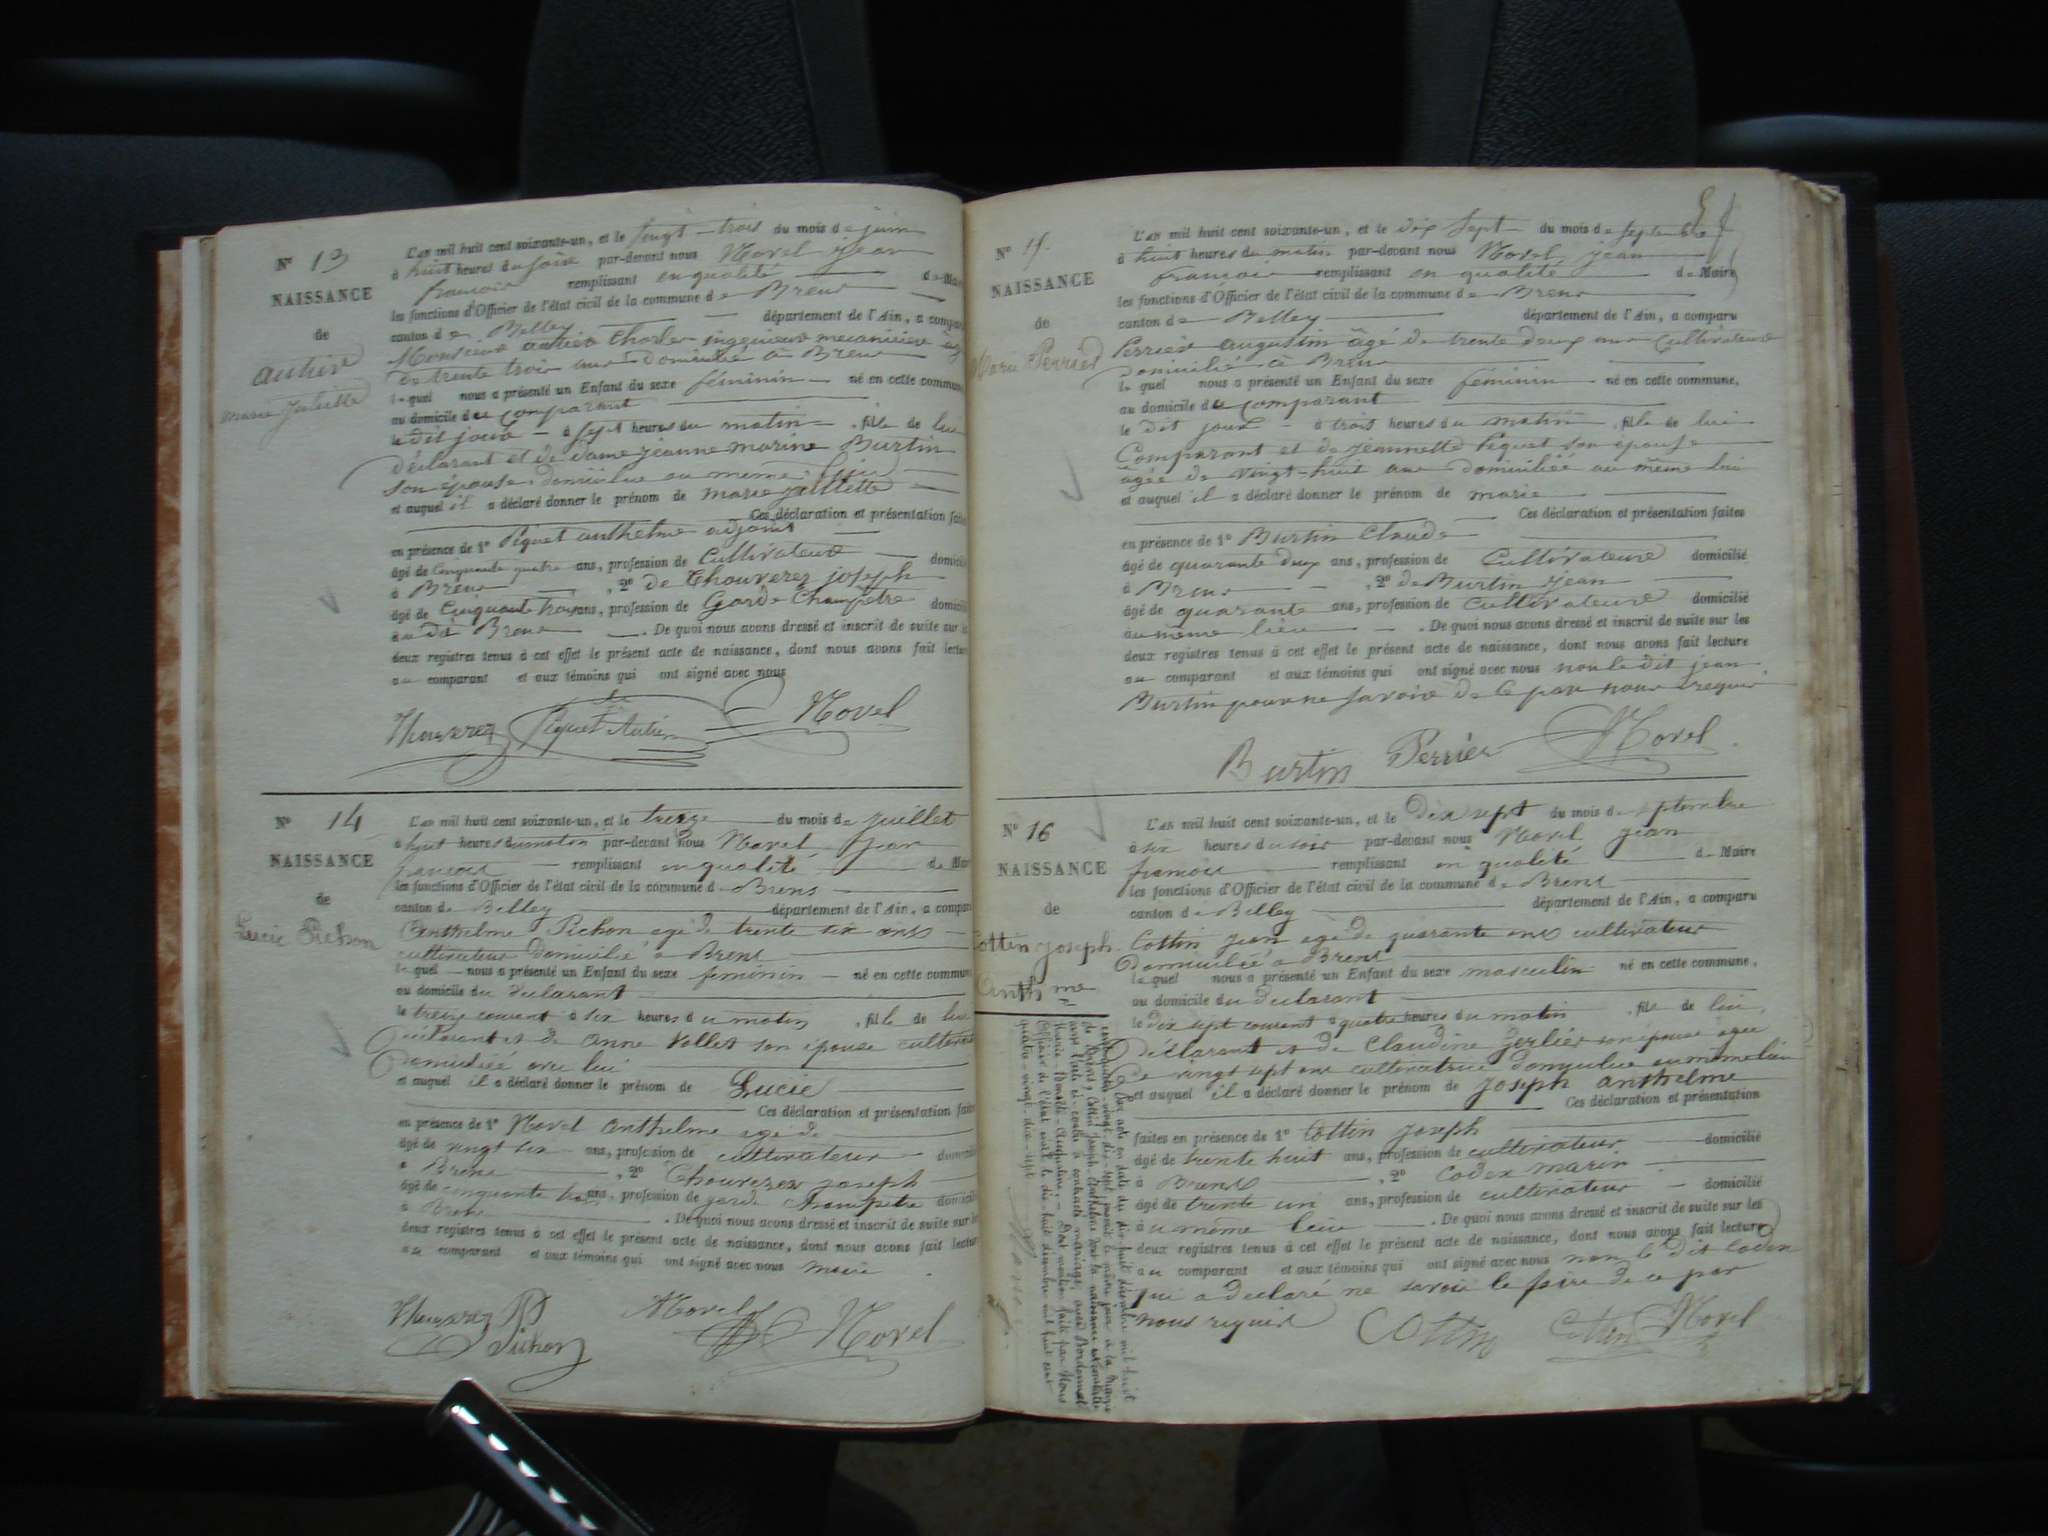 N° 13
NAISSANCE
de
autier
marie juliette
L'an mil huit cent soixante-un, et le vingt-trois du mois de juin
à huit heures du soir par-devant nous Morel jean
francois remplissant en qualité de Maire
les fonctions d'Officier de l'état civil de la commune de Brens
canton de Belley département de l'Ain, a comparu
Monsieur autier Charles ingenieur mecanicien agé
de trente trois ans domicilié à Brens
lequel nous a présenté un Enfant du sexe féminin né en cette commune
au domicile du comparant
le dit jour à sept heures du matin, fille de lui
déclarant et de dame jeanne marine Burtin
son épouse domiciliée au même lieu
et auquel il a déclaré donner le prénom de marie juliette
Ces déclaration et présentation faites
en présence de 1° Piquet anthelme adjoint
âgé de cinquante quatre ans, profession de cultivateur domicilié
à Brens, 2° de Thouverez joseph
âgé de cinquante trois ans, profession de Garde Champêtre domicilié
au dit Brens. De quoi nous avons dressé et inscrit de suite sur les
deux registres tenus à cet effet le présent acte de naissance, dont nous avons fait lecture
au comparant et aux témoins qui ont signé avec nous
Piquet Autier Morel
N° 14
NAISSANCE
de
Lucie Pichon
L'an mil huit cent soixante-un, et le treize du mois de juillet
à huit heures du matin par-devant nous Morel jean
francois remplissant en qualité de Maire
les fonctions d'Officier de l'état civil de la commune de Brens
canton de Belley département de l'Ain, a comparu
Anthelme Pichon agé de trente six ans
cultivateur domicilié a Brens
lequel nous a présenté un Enfant du sexe feminin né en cette commune
au domicile du declarant
le treize courant à six heures du matin, fille de lui
déclarant et de anne Vollet son épouse cultivatrice
domiciliée avec lui
et auquel il a déclaré donner le prénom de Lucie
Ces déclaration et présentation faites
en présence de 1° Morel anthelme agé de
âgé de vingt six ans, profession de cultivateur domicilié
à Brens, 2° Thouverez joseph
âgé de cinquante trois ans, profession de garde champetre domicilié
à Brens. De quoi nous avons dressé et inscrit de suite sur les
deux registres tenus à cet effet le présent acte de naissance, dont nous avons fait lecture
au comparant et aux témoins qui ont signé avec nous maire
Morel Morel
Pichon
N° 15
NAISSANCE
de
Marie Perrier
L'an mil huit cent soixante-un, et le dix sept du mois de septembre
à huit heures du matin par-devant nous Morel jean
francois remplissant en qualité de Maire
les fonctions d'Officier de l'état civil de la commune de Brens
canton de Belley département de l'Ain, a comparu
Perrier augustin âgé de trente deux ans cultivateur
domicilié à Brens
lequel nous a présenté un Enfant du sexe féminin né en cette commune,
au domicile du comparant
le dit jour à trois heures du matin, fille de lui
Comparant et de jeannette Piquet son épouse
âgée de vingt-huit ans domiciliée au même lieu
et auquel il a déclaré donner le prénom de marie
Ces déclaration et présentation faites
en présence de 1° Burtin Claude
âgé de quarante deux ans, profession de cultivateur domicilié
à Brens, 2° de Burtin jean
âgé de quarante ans, profession de cultivateur domicilié
au même lieu. De quoi nous avons dressé et inscrit de suite sur les
deux registres tenus à cet effet le présent acte de naissance, dont nous avons fait lecture
au comparant et aux témoins qui ont signé avec nous non le dit jean
Burtin pour ne savoir de ce par nous requis
Burtin Perrier Morel
N° 16
NAISSANCE
de
Cottin joseph
Anthme
L'an mil huit cent soixante-un, et le dix sept du mois de septembre
à six heures du soir par-devant nous Morel jean
francois remplissant en qualité de Maire
les fonctions d'Officier de l'état civil de la commune de Brens
canton de Belley département de l'Ain, a comparu
Cottin jean agé de quarante ans cultivateur
domicilié a Brens
lequel nous a présenté un Enfant du sexe masculin né en cette commune,
au domicile du declarant
le dix sept courant à quatre heures du matin, fils de lui
déclarant et de Claudine Gerlier son épouse agée
de vingt sept ans cultivatrice domiciliée au même lieu
et auquel il a déclaré donner le prénom de joseph anthelme
Ces déclaration et présentation
faites en présence de 1° Cottin joseph
âgé de trente huit ans, profession de cultivateur domicilié
à Brens, 2° Codex marin
âgé de trente un ans, profession de cultivateur domicilié
au même lieu. De quoi nous avons dressé et inscrit de suite sur les
deux registres tenus à cet effet le présent acte de naissance, dont nous avons fait lecture
au comparant et aux témoins qui ont signé avec nous non le dit Codex
qui a declaré ne savoir le faire de ce par
nous requis
Cottin Cottin Morel
Par acte en date du dix huit décembre mil huit
cent quatre-vingt dix-sept passé le même jour à la Mairie
de Cottin Joseph-Anthelme dont la naissance est constatée
par l'acte ci-contre a contracté mariage avec
Marie Dont mention faite par Nous
Officier de l'état civil le dix huit décembre mil huit cent
quatre-vingt-dix-sept